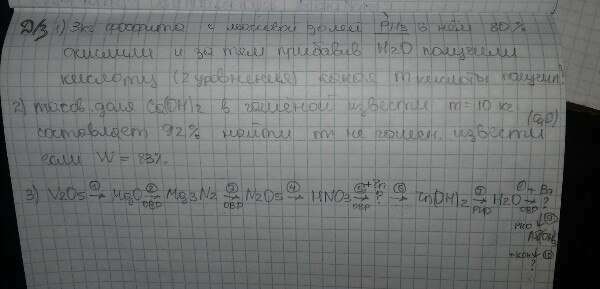 Д/з 1) 3кг фосфита с массовой долей PH3 в нём 80%
окислили и затем прибавив H2O получили
кислоту (2 уравнения) какая m кислоты получил.
2) массов. доля Ca(OH)2 в гашёной извести m=10 кг
составляет 92% найти m не гашен. извести (CaO)
если W = 83%.
3) V2O5 ① → MgO ② → ОВР Mg3N2 ③ → ОВР N2O5 ④ → HNO3 ⑤ +Zn → ОВР ? ⑥ → Zn(OH)2 ⑦ → РИО H2O → ОВР + Ba ?
РИО
+KOH ?